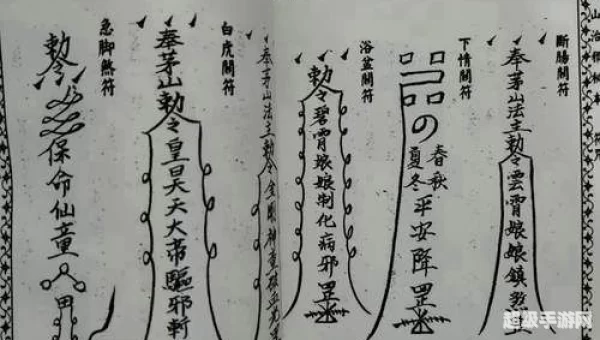 断腸關符
奉茅山法主勅令雲霄娘娘鎮
下情關符
春秋
夏冬
平安降罡
浴盆關符
勅令碧霄娘娘制化病邪罡
奉茅山法主勅令金剛神童
白虎關符
奉茅山勅令皇昊天大帝驅邪斬
急脚煞符
勅令
保命仙童
超级手游网